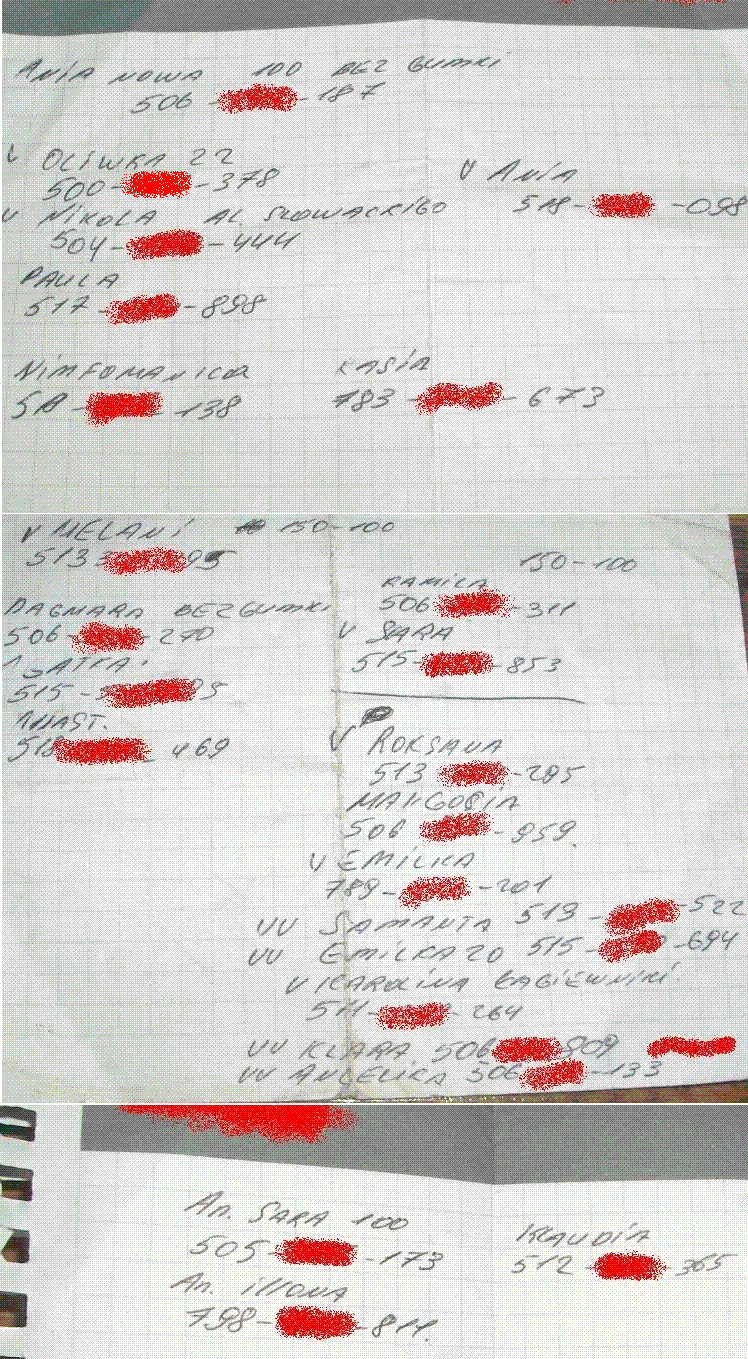 ANIA NOWA 100 BEZ GUMKI
506 - - 187
V OLIWKA 22
500 - - 378
V ANIA
518 - - 098
V NIKOLA AL. SŁOWACKIEGO
504 - - 444
PAULA
517 - - 898
NIMFOMANICA KASIA
- 138 783 - - 673
V MELANI 150-100
513 95
150-100
KAMILA
506 - 311
DAGMARA BEZ GUMKI
506 - - 270
V SARA
515 - - 853
515 - 95
ANAST.
518 469
V ROKSANA
513 - 295
MAŁGOSIA
506 - 959.
V EMILKA
789 - - 201
VV SAMANTA 519 - - 522
VV EMILKA 20 515 - - 694
V KAROLINA ŁAGIEWNIKI.
511 - - 264
VV KLARA 506 909
VV ANGELIKA 506 - 133
An. SARA 100
505 - - 173
KLAUDIA
512 - - 365
An. ILLONA
798 - - 811.